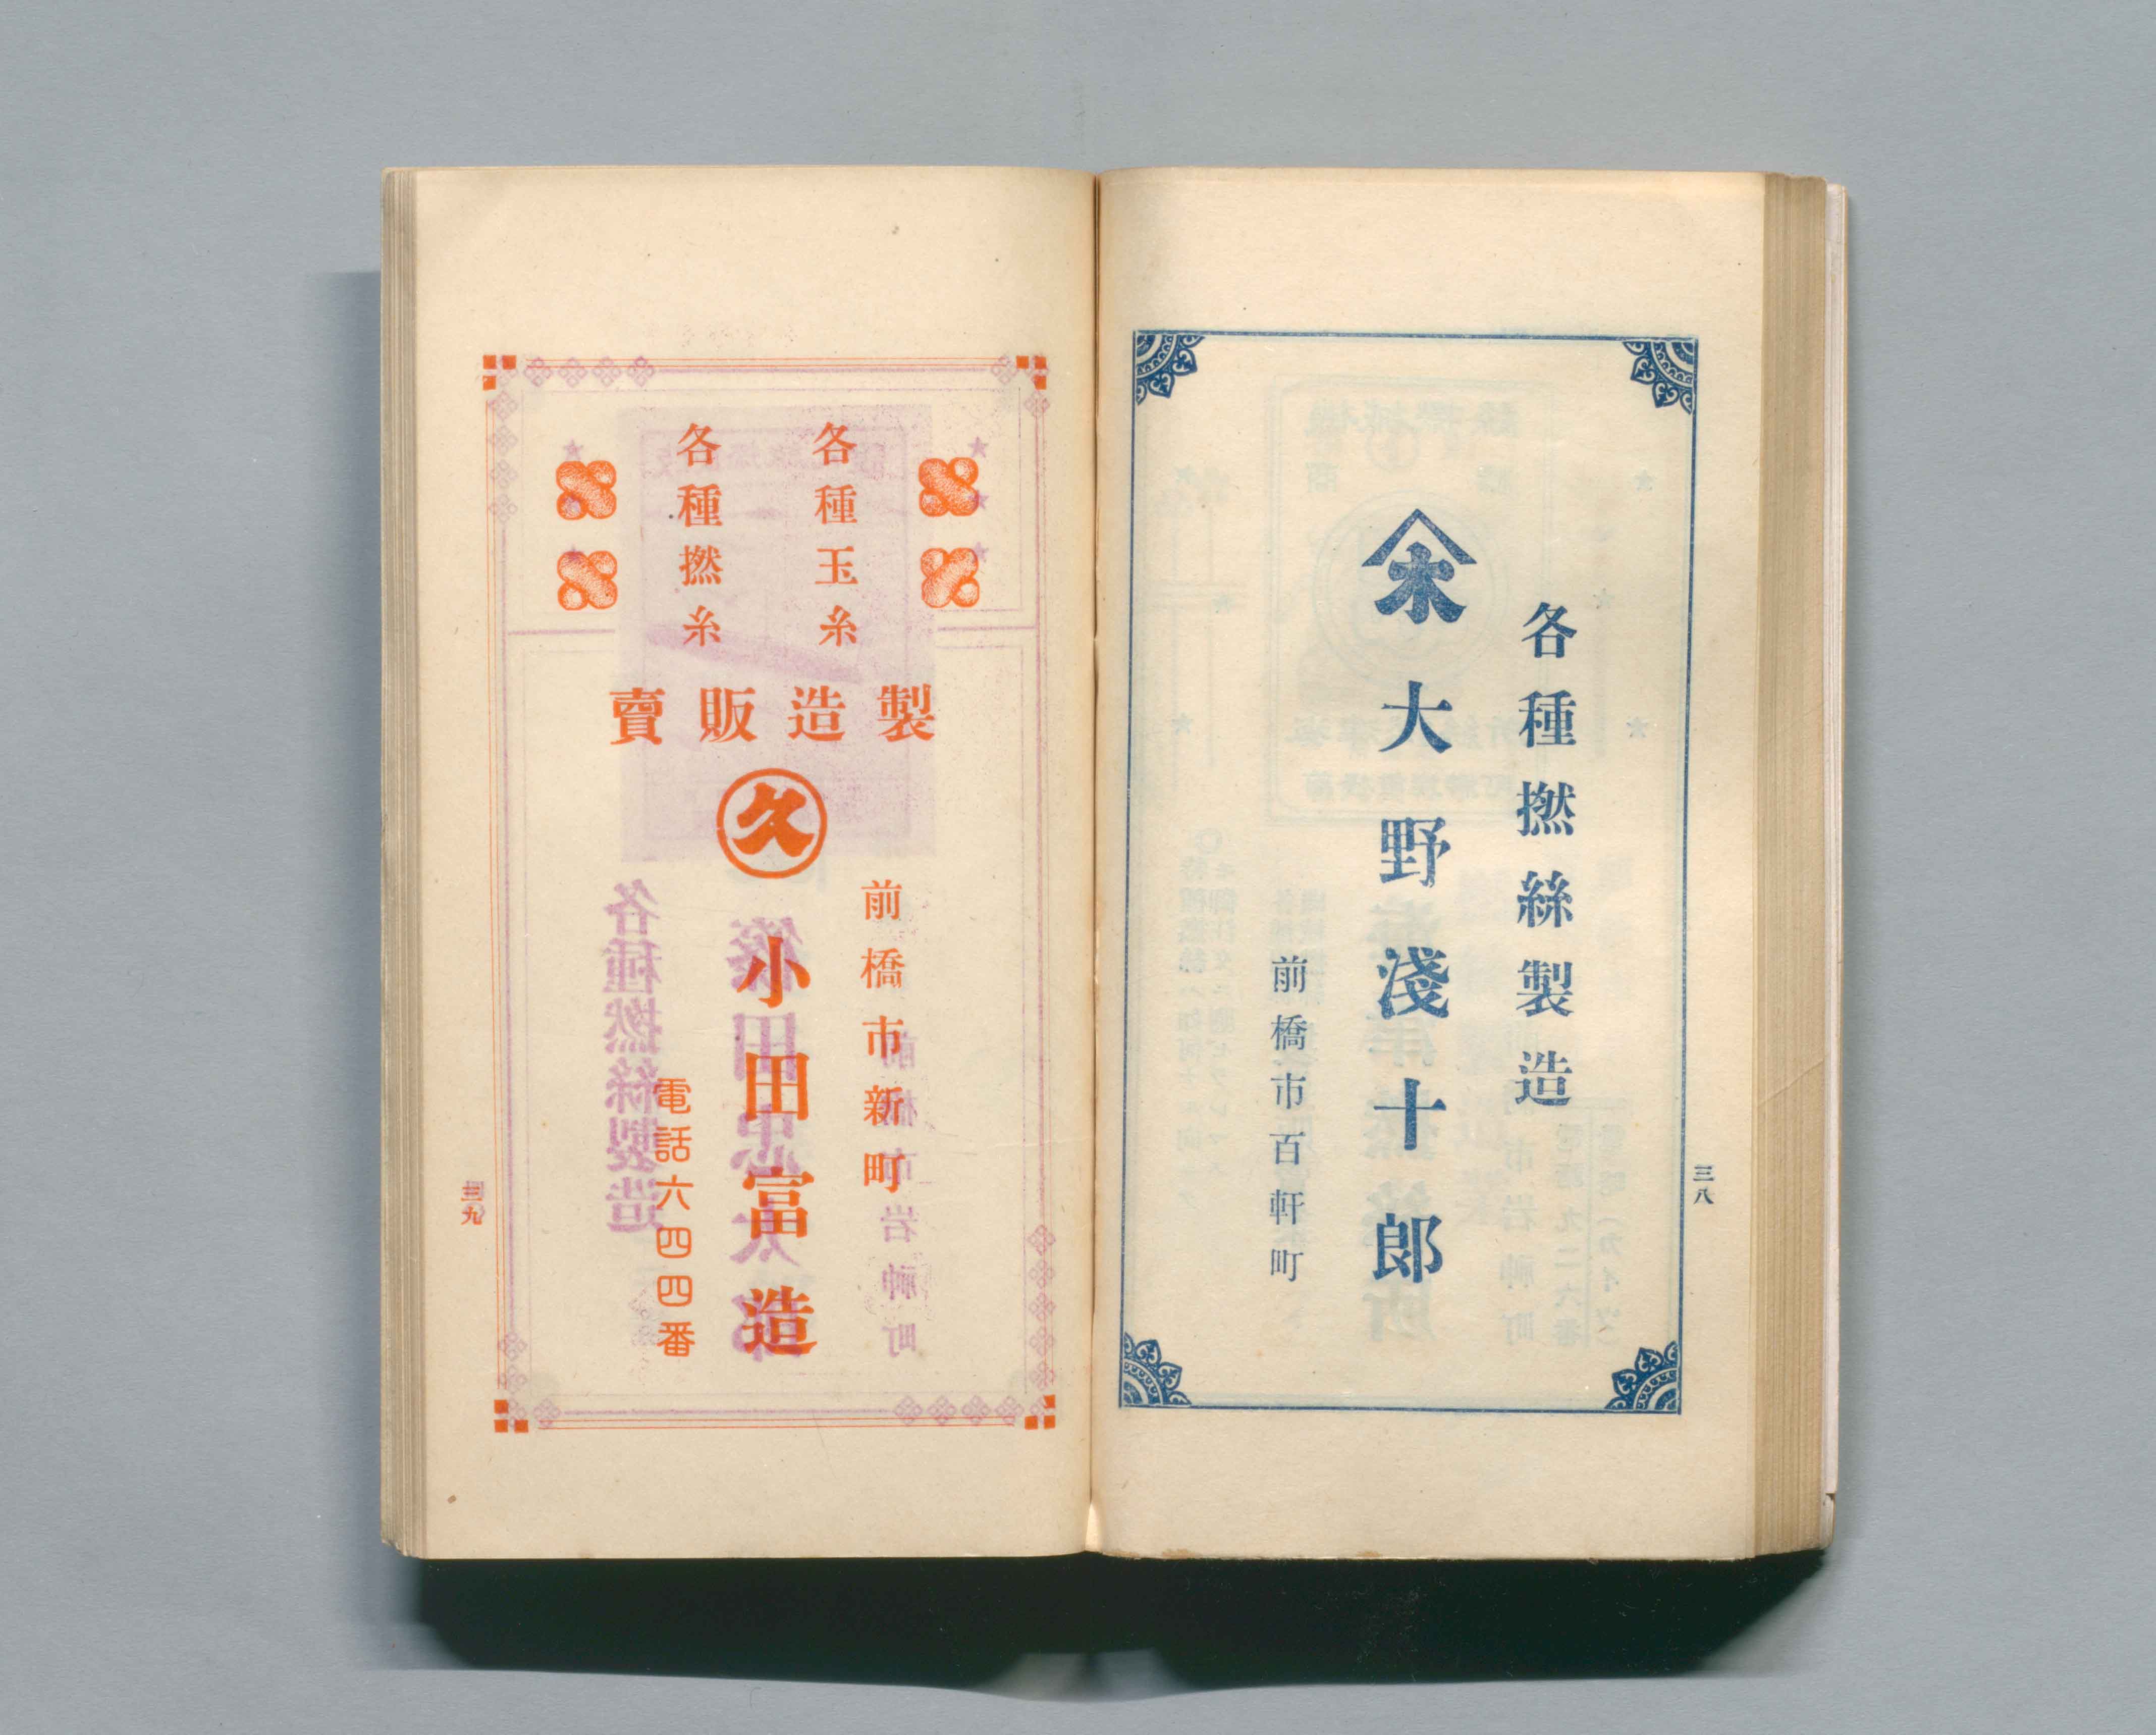 各種撚絲製造
木
大野淺十郎
前橋市百軒町
三八
各種玉糸
各種撚糸
製造販賣
久
前橋市新町
小田富造
電話六四四番
三九